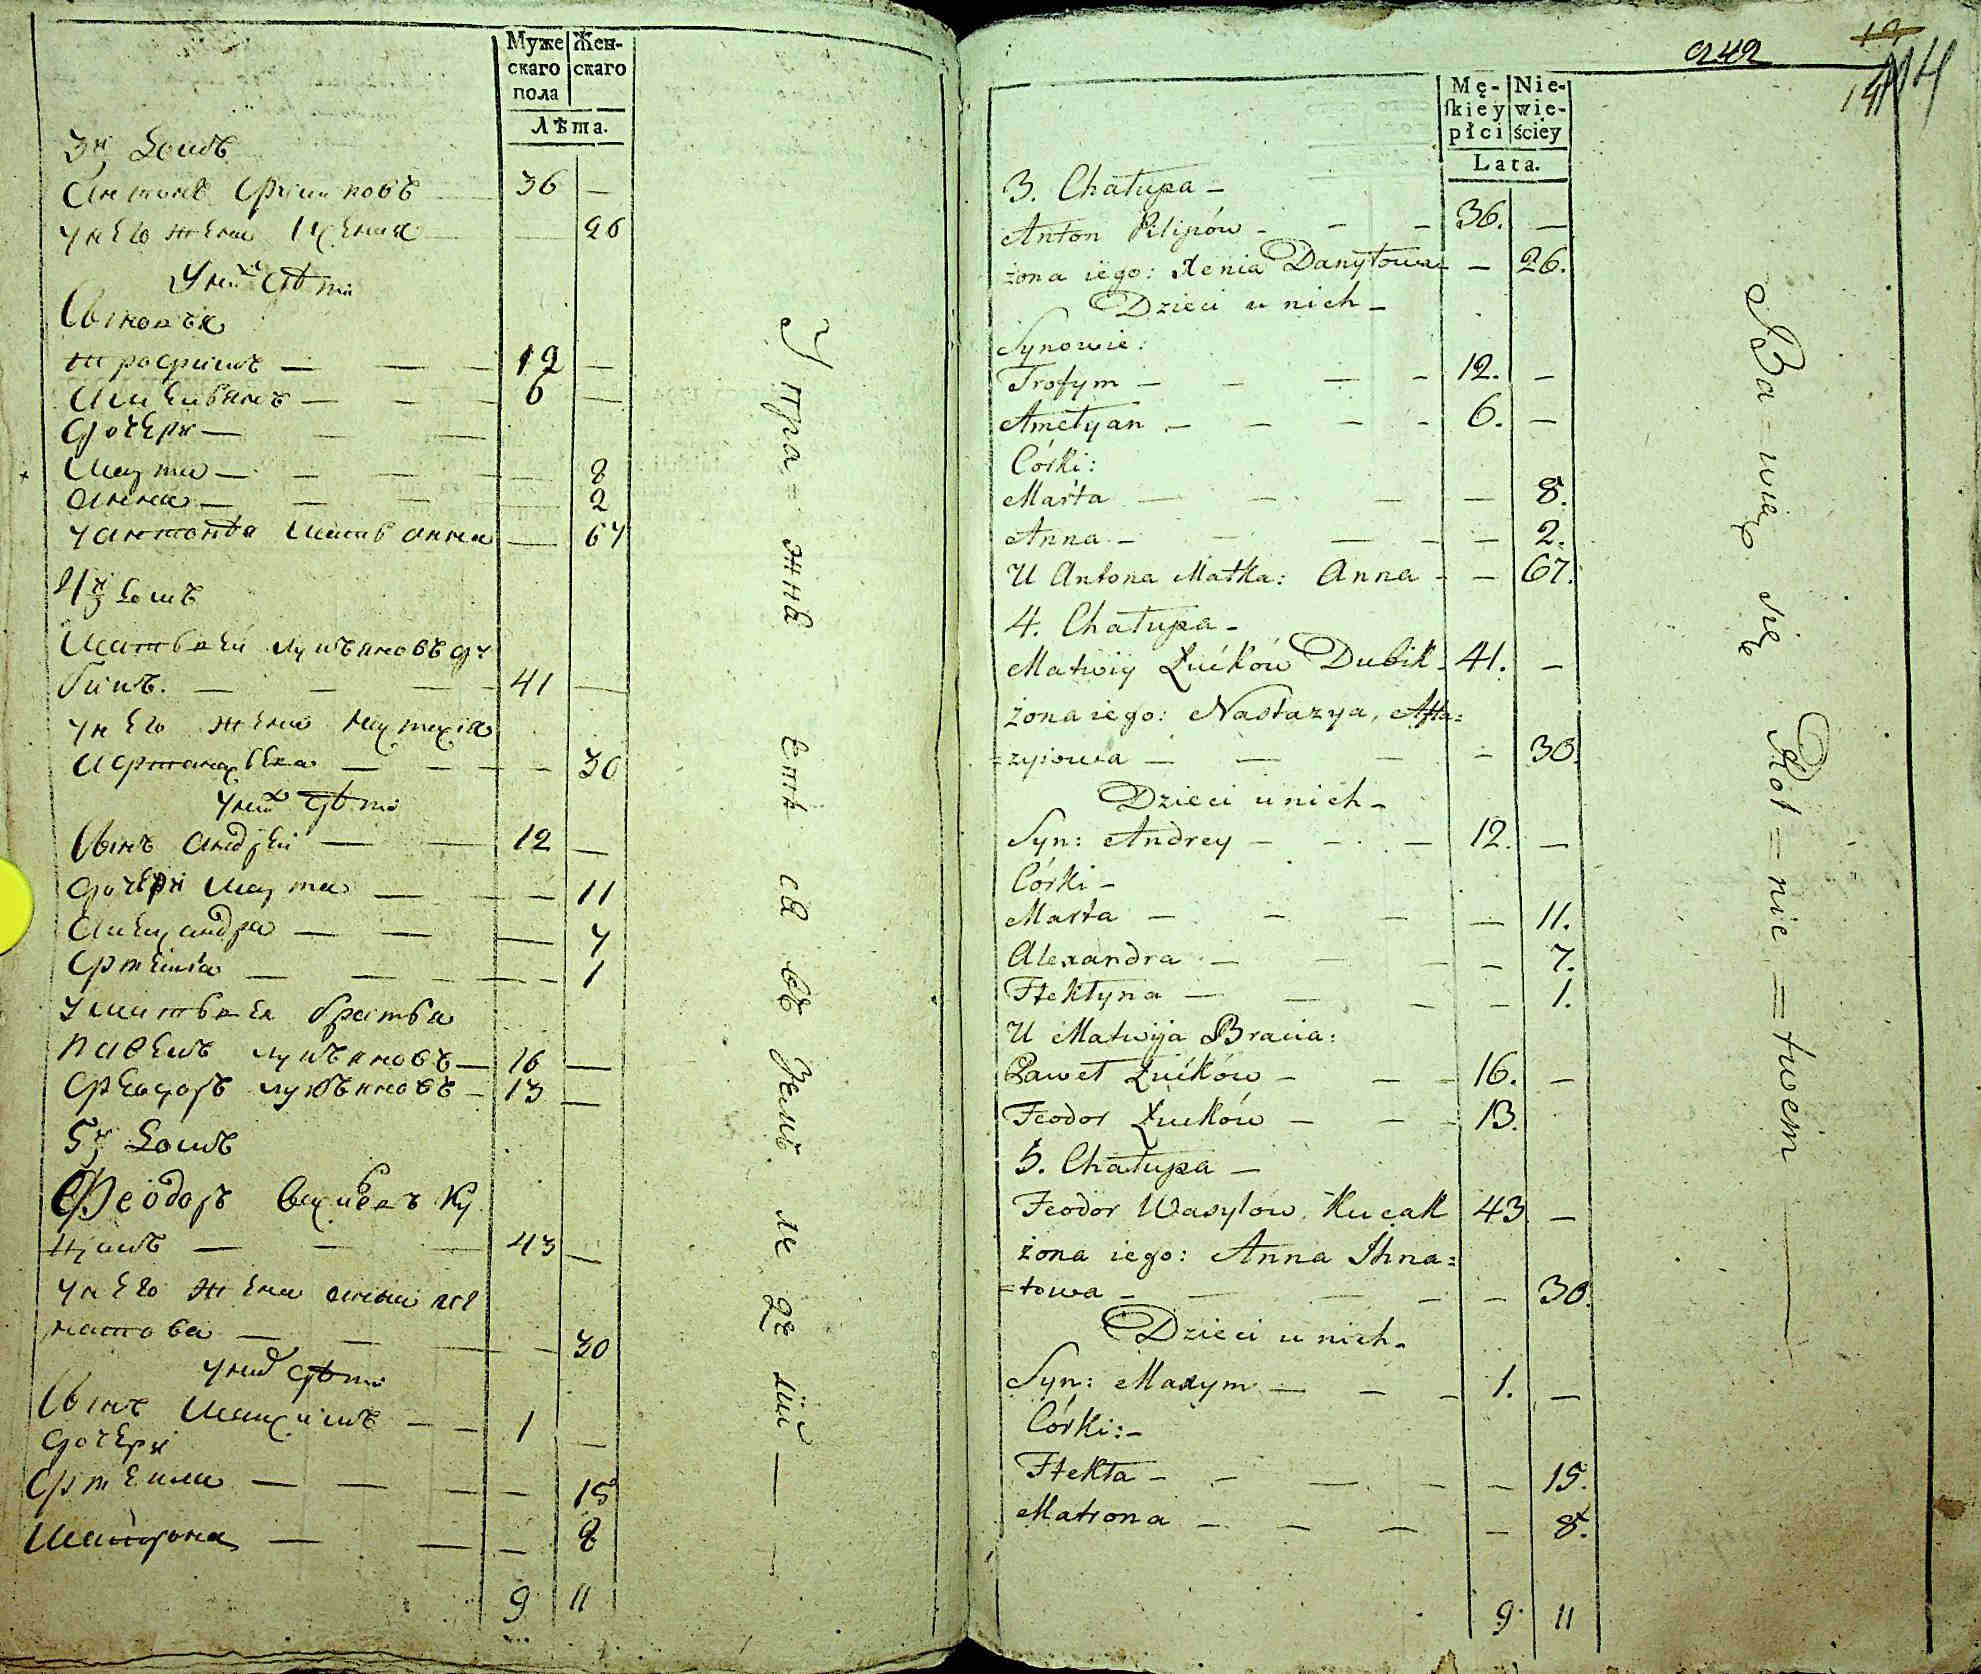 Муже
скаго
пола
Жен-
скаго
Лѣта.
3й домъ
Антонъ Филиповъ 36 —
у него жена Ксения — 26
У них дѣти
Сыновья
Трофимъ — — — 12 —
Амельянъ — — — 6 —
дочери — — —
Марта — — — — 8
Анна — — — — 2
у Антона Мать Анна — 67
4й домъ
Матвей Лукьяновъ ду
бикъ. — — — 41 —
у него жена
— — — — 30
у них дѣти
Сынъ Андрей — — 12 —
дочери Марта — — — 11
Александра — — — 7
— — — — 1
у Матвея братья
Павелъ Лукьяновъ — 16 —
Феодоръ Лукьяновъ — 13 —
5й домъ
Феодоръ Ку
— — — 43 —
у него жена Анна Иг
натова — — — 30
у них дѣти
Сынъ Максимъ — — 1 —
дочери
— — — — 15
Матрона — — — 8
9 11
Упра= жня ется въ Зем ле де лiи —
242
14
Mę-
skiey
płci
Nie-
wie-
ściey
Lata.
3. Chałupa —
Anton Pilipów — — — 36. —
żona iego: Xenia Danyłowa — — 26.
Dzieci u nich —
Synowie:
Trofym — — — — 12. —
Amelyan — — — — 6. —
Córki:
Marta — — — — 8.
Anna — — — — — 2.
U Antona Matka: Anna — — 67.
4. Chałupa —
Matwiy Łućków Dubik — 41. —
żona iego: Nastazya, Afta=
=zyiowa — — — — 30.
Dzieci u nich —
Syn: Andrey — — — 12. —
Córki —
Marta — — — — 11.
Alexandra — — — — 7.
Ftektyna — — — — 1.
U Matwija Bracia:
Paweł Łućków — — — 16. —
Feodor Łućków — — — 13.
5. Chałupa —
Feodor Wasylow Kucak 43 —
żona iego: Anna Ihna=
=towa — — — — — 30.
Dzieci u nich —
Syn: Maxym — — — 1. —
Córki: —
Ftekta — — — — — 15.
Matrona — — — — 8.
9. 11
Ba=wią się Rol=nic=twem —